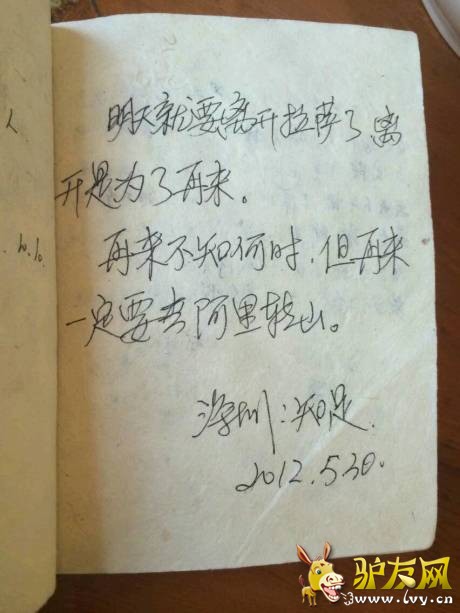 明天就要离开拉萨了离
开是为了再来。
再来不知何时,但再来
一定要去阿里转山。
深圳:知足.
2012.5.30.
人
6.10.
驴友网
www.lvy.cn